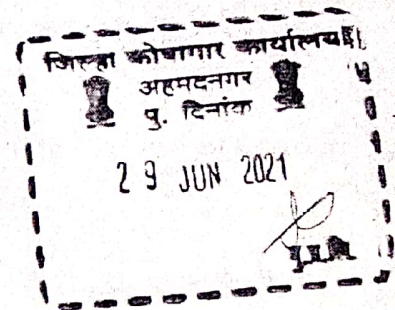 जिल्हा कोषागार कार्यालय
अहमदनगर
पु. दिनांक
29 JUN 2021